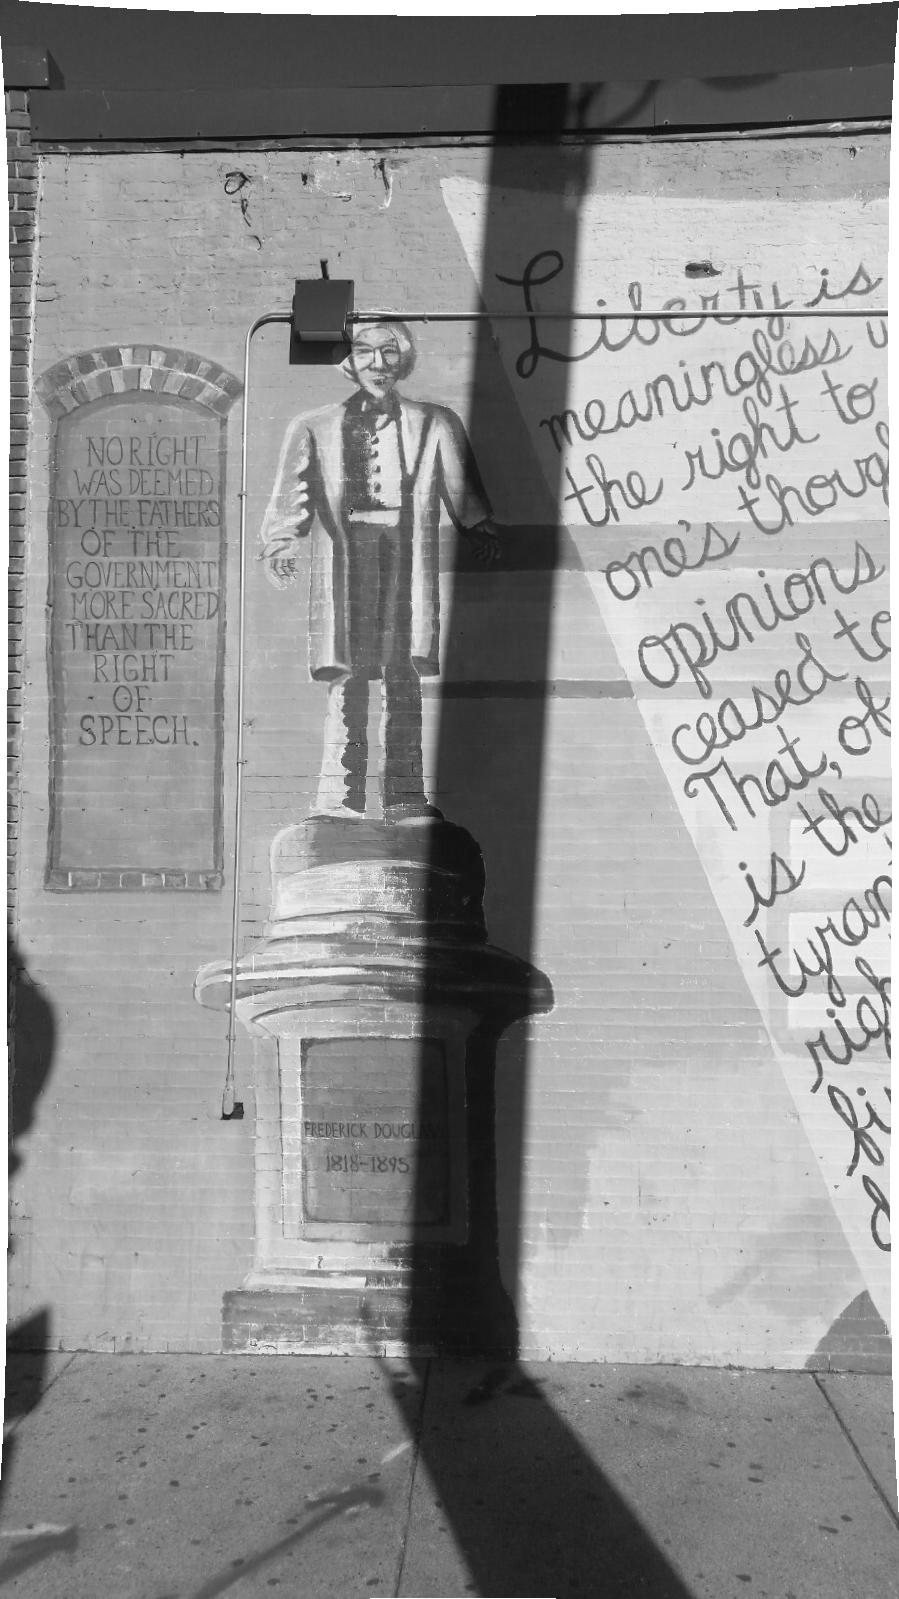 NO RIGHT
WAS DEEMED
BY THE FATHERS
OF THE
GOVERNMENT
MORE SACRED
THAN THE
RIGHT
OF
SPEECH.
FREDERICK DOUGLASS
1818-1895
Liberty is
meaningless
the right to
one's
opinions
ceased to
That, of
is the